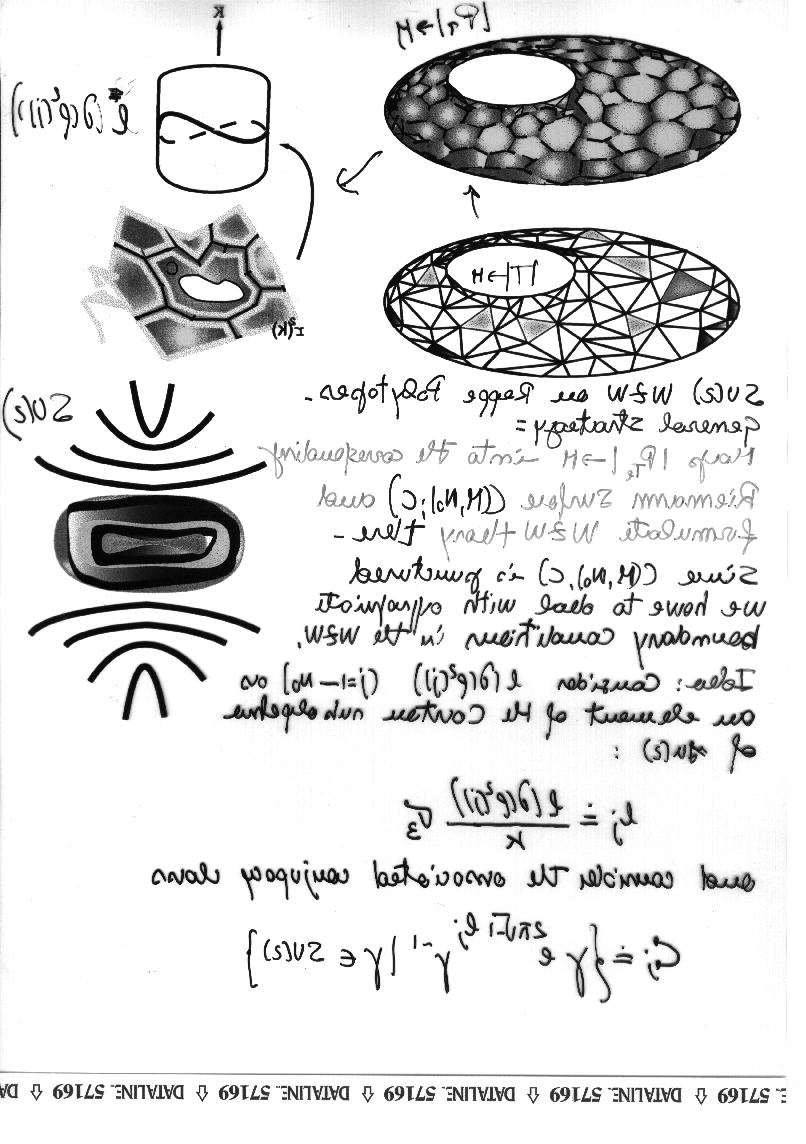 |P_T|→M
K
l(∂(ρ²(j)))
|T|→M
ρ²(k)
SU(2)
SU(2) WZW on Regge Polytopes-
General Strategy:
Map |P_Tl|→M into the corresponding
Riemann Surface ((M,N₀);C) and
formulate WZW theory there-
Since ((M,N₀),C) is punctured
we have to deal with appropriate
boundary conditions in the WZW.
Idea: Consider l(∂(ρ²(j))) (j=1—N₀) as
an element of the Cartan subalgebra
of su(2) :
lⱼ ≐ l(∂(ρ²(j))) / K σ₃
and consider the associated conjugacy class
Cⱼ ≐ {γ e^{2π√-1 lⱼ} γ⁻¹ | γ ∈ SU(2)}
DATALINE. 57169 ⇧ DATALINE. 57169 ⇧ DATALINE. 57169 ⇧ DATALINE. 57169 ⇧ DATALINE. 57169